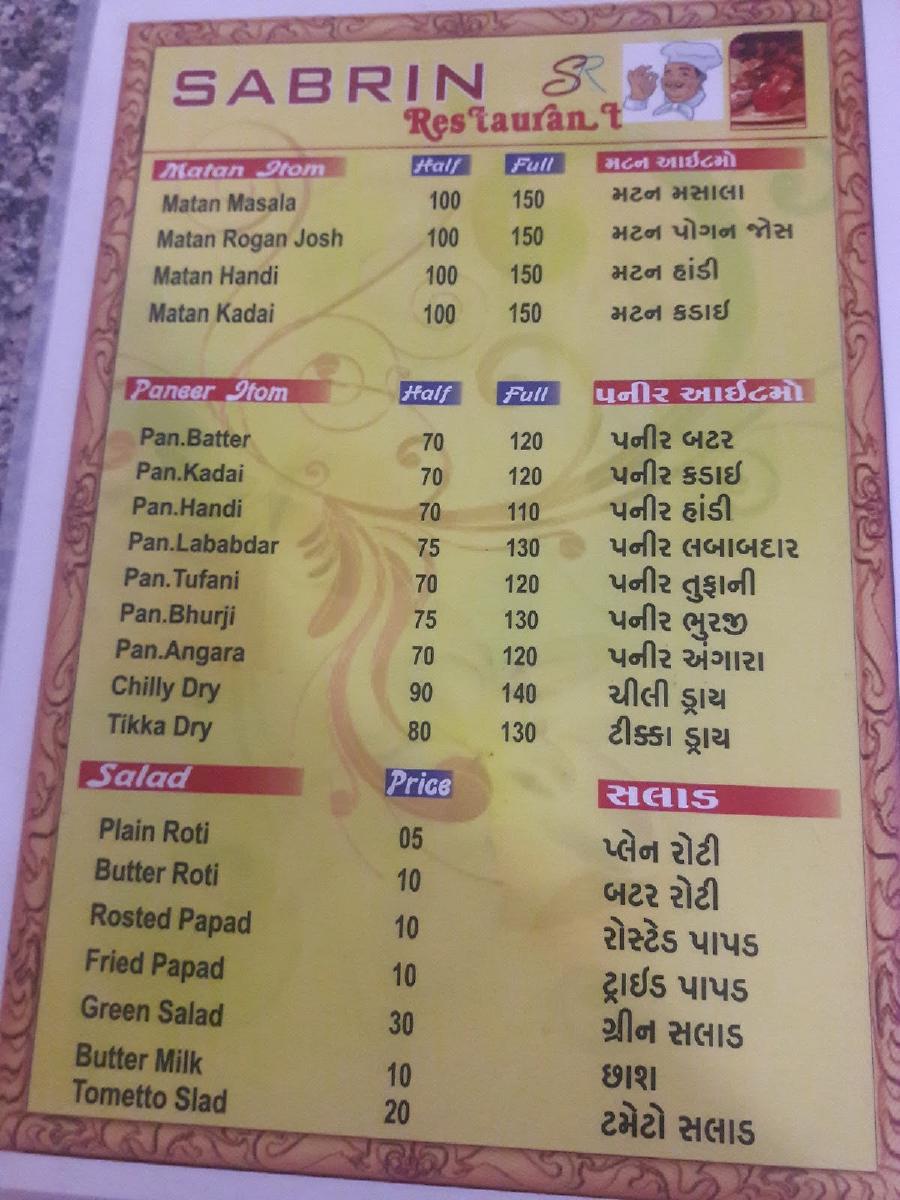 SABRIN SR
Restaurant
Matan Itom Half Full મટન આઈટમો
Matan Masala 100 150 મટન મસાલા
Matan Rogan Josh 100 150 મટન પોગન જોસ
Matan Handi 100 150 મટન હાંડી
Matan Kadai 100 150 મટન કડાઇ
Paneer Itom Half Full પનીર આઈટમો
Pan.Batter 70 120 પનીર બટર
Pan.Kadai 70 120 પનીર કડાઇ
Pan.Handi 70 110 પનીર હાંડી
Pan.Lababdar 75 130 પનીર લબાબદાર
Pan.Tufani 70 120 પનીર તુફાની
Pan.Bhurji 75 130 પનીર ભુરજી
Pan.Angara 70 120 પનીર અંગારા
Chilly Dry 90 140 ચીલી ડ્રાય
Tikka Dry 80 130 ટીક્કા ડ્રાય
Salad Price સલાડ
Plain Roti 05 પ્લેન રોટી
Butter Roti 10 બટર રોટી
Rosted Papad 10 રોસ્ટેડ પાપડ
Fried Papad 10 ટ્રાઈડ પાપડ
Green Salad 30 ગ્રીન સલાડ
Butter Milk 10 છાશ
Tometto Slad 20 ટમેટો સલાડ